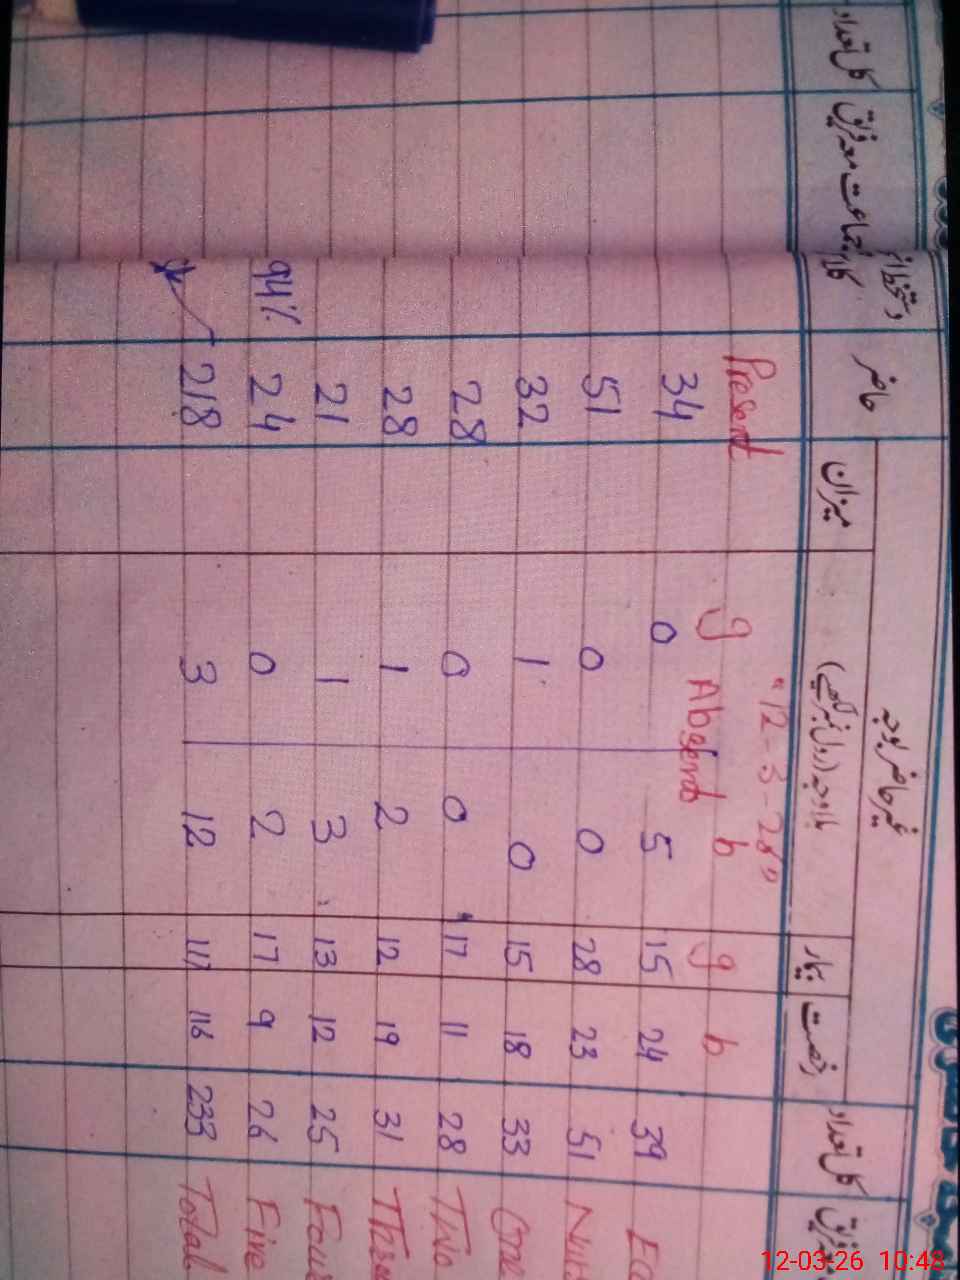 غیر حاضر بلاوجہ
کل تعداد رخصت بیمار بلاوجہ (رول نمبر لکھیے) میزان حاضر
کل تعداد
"12-3-26"
Present g Absent b g b
34 0 5 15 24 39
51 0 0 28 23 51
32 1 0 15 18 33 One
28 0 0 17 11 28 Two
28 1 2 12 19 31
21 1 3 13 12 25
94% 24 0 2 17 9 26 Five
218 3 12 117 116 233 Total
12-03-26 10:48